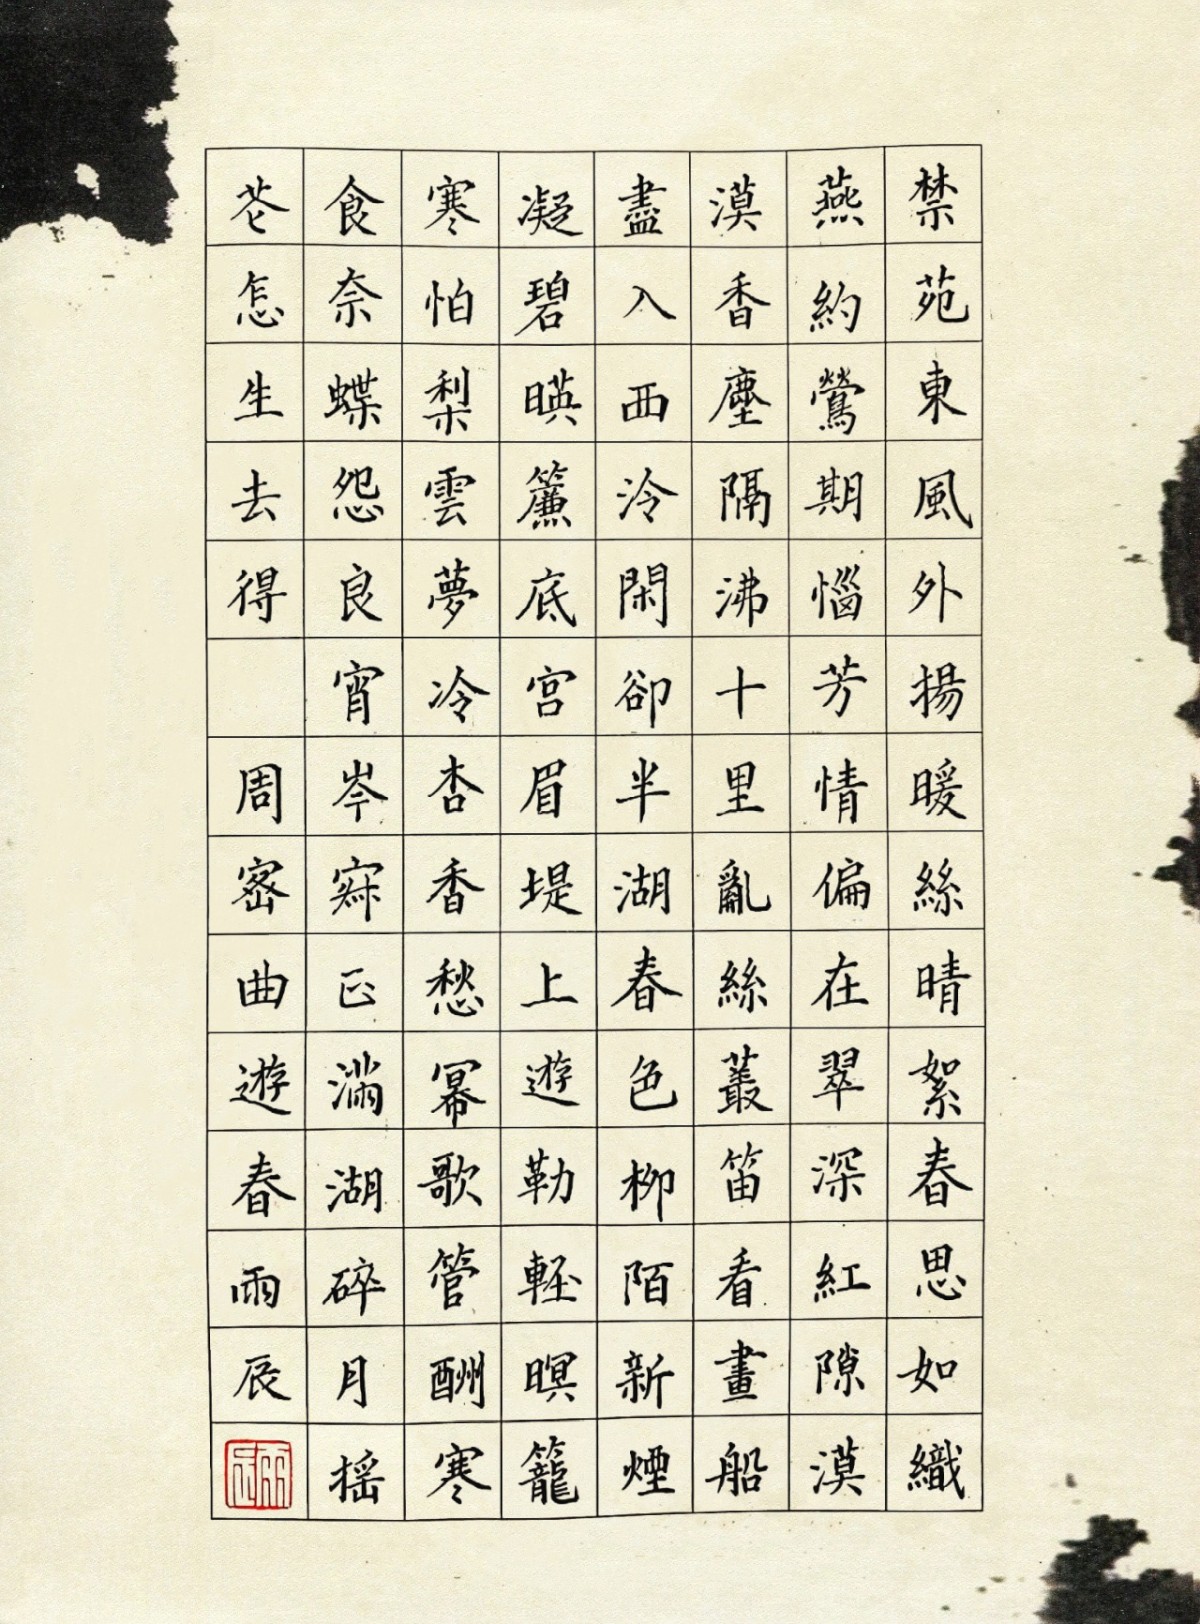 禁苑東風外揚暖絲晴絮春思如織
燕約鶯期惱芳情偏在翠深紅隙漠
漠香塵隔沸十里亂絲叢笛看畫船
盡入西泠閑卻半湖春色柳陌新煙
凝碧暎簾底宫眉堤上遊勒輕暝籠
寒怕梨雲夢冷杏香愁冪歌管酬寒
食奈蝶怨良宵岑寂正滿湖碎月摇
花怎生去得 周密曲遊春雨辰